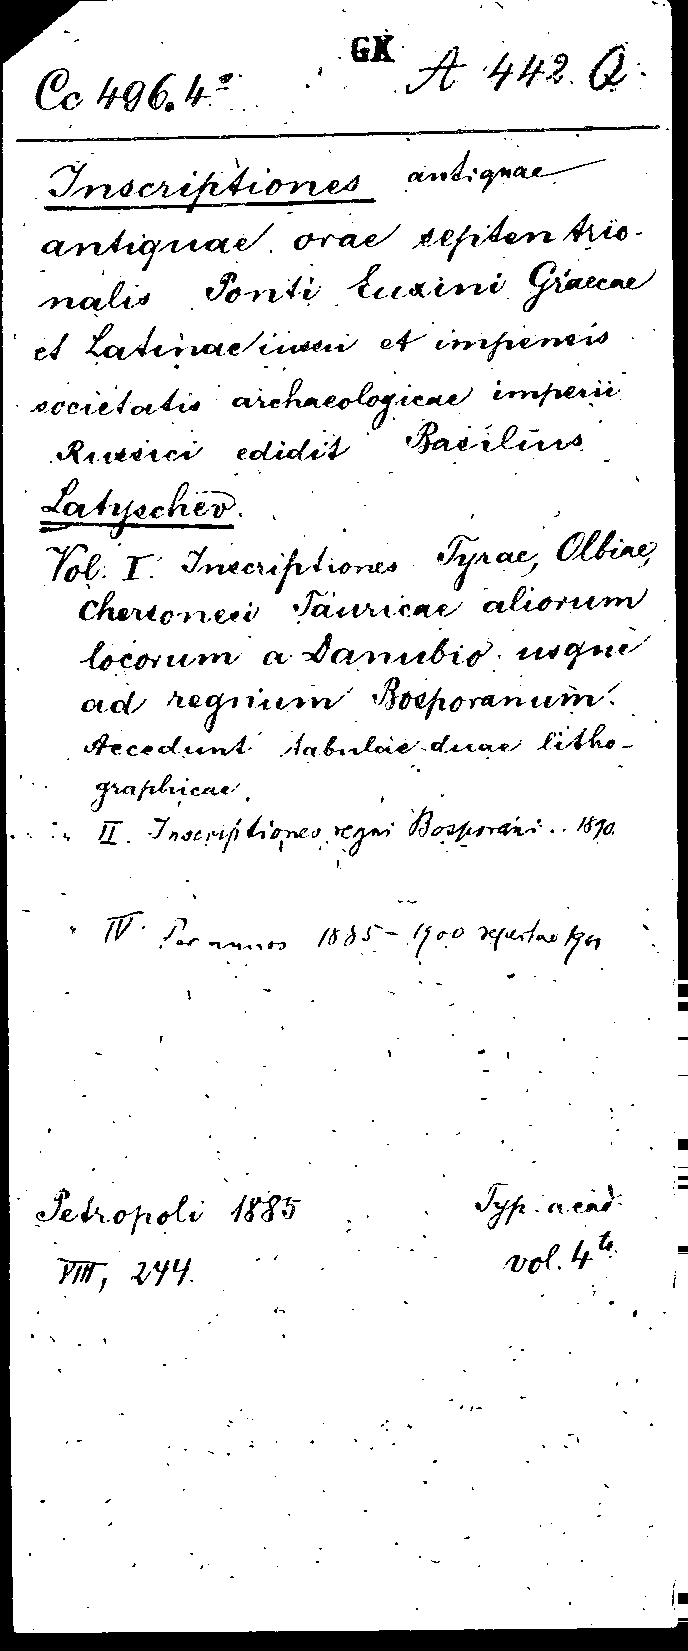 GK
Cc 496.4º A 442 Q.
Inscriptiones antiquae
antiquae orae septentrio-
nalis Ponti Euxini Graecae
et Latinae iussu et impensis
societatis archaeologicae imperii
Russici edidit Basilius
Latyschev.
Vol. I. Inscriptiones Tyrae, Olbiae,
Chersonesi Tauricae aliorum
locorum a Danubio usque
ad regnum Bosporanum.
Accedunt tabulae duae litho-
graphicae.
" II. Inscriptiones regni Bosporani.. 1890.
" IV. Per annos 1885-1900 repertae 1901
Petropoli 1885 Typ. acad.
VIII, 244. vol. 4to.